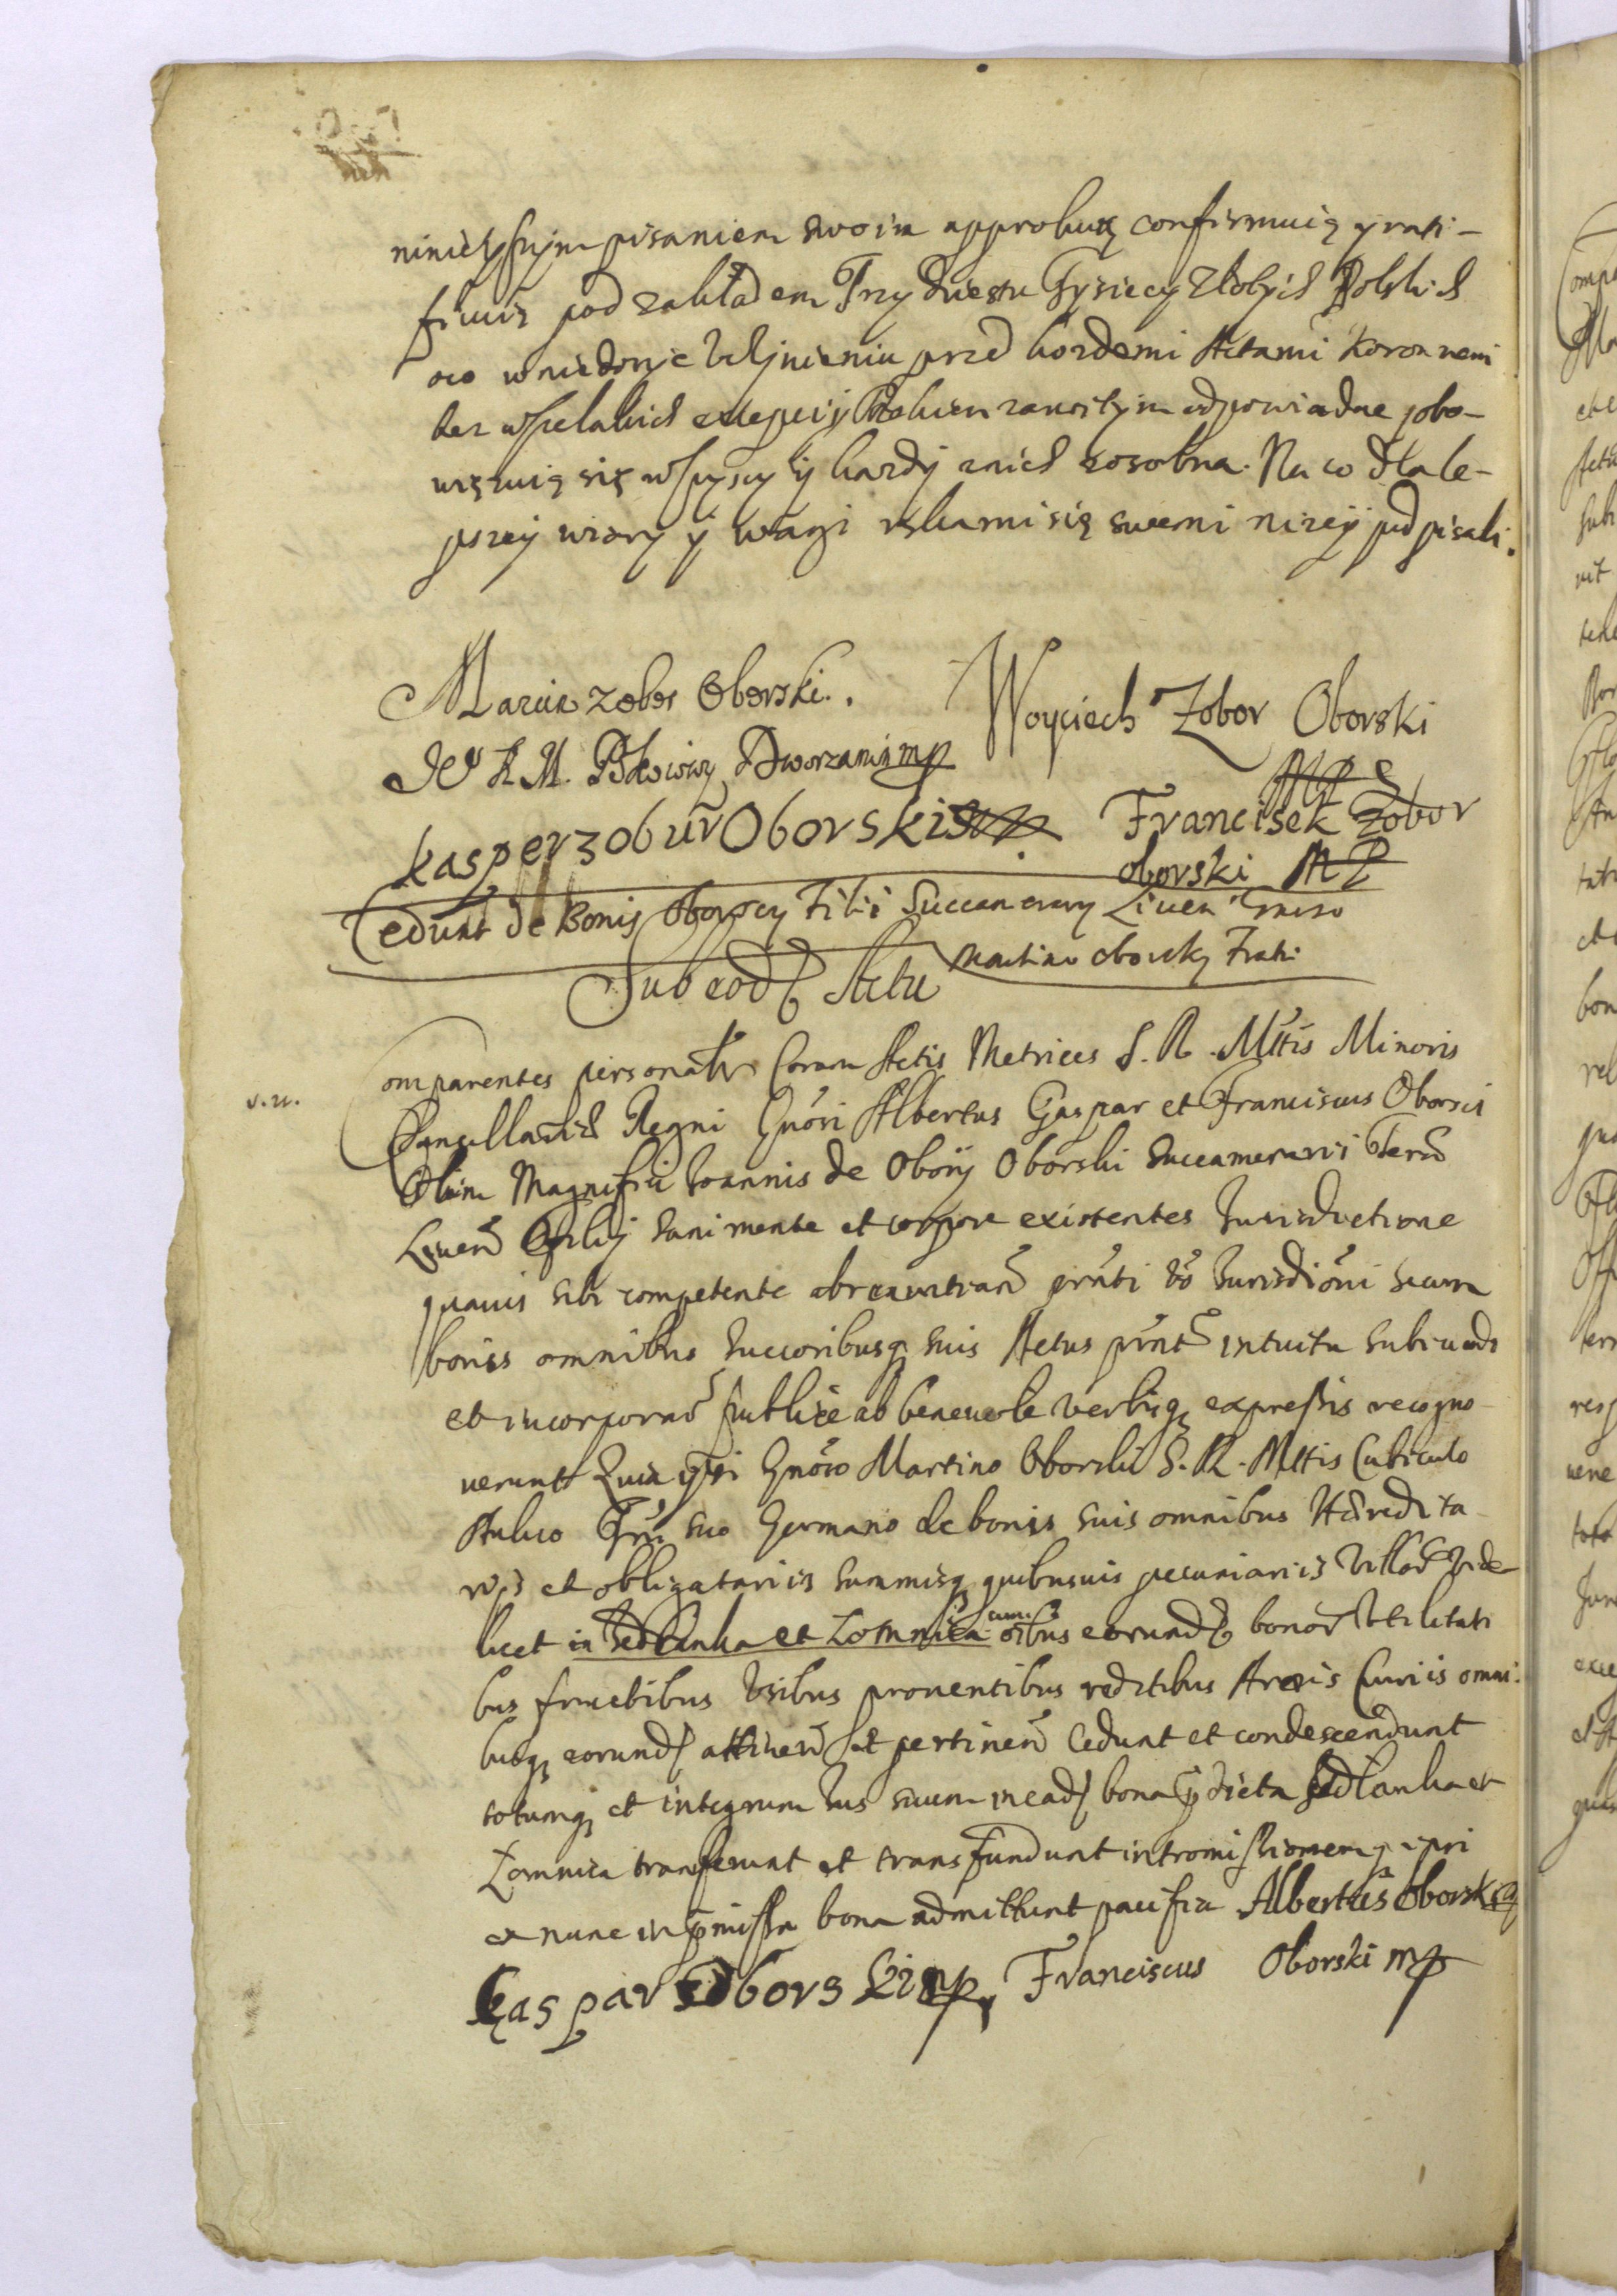 ninieyszym pisaniem swoim approbuią confirmuią y rati-
fikuią pod zakładem Trzydziestu Tysięcy Złotych Polskich
oco w niedosyć Uczynieniu przed kozdemi Actami Koronnemi
bez wszelakich excepcij Rokiem zawitym odpowiadac jobo-
więzuią się wszyscy ij kazdy znich zosobna. Na co dla le-
pszey wiary y wagi rękami się swemi nizeij podpisali.
Marcin zobor Oborski.
Woyciech Zobor Oborski
Je° K M. Pokoiowy Dworzanin mp
MP
kasper z obur Oborski mp
Francisek Zobor
oborski MP
Cedunt de Bonis Oborscy Filii Succamerary Liuen Gnoso
Martino Oborsky Fratri
Sub eod Actu
Comparentes personaltr Coram Actis Metrices S. R. Mttis Minoris
v. n.
Cancellariæ Regni Gnosi Albertus Gaspar et Franciscus Oborscii
Olim Magnifici Joannis de Obory Oborski Succamerarii Terræ
Liuen Filij Sani mente et corpore existentes Jurisdictione
quauis sibi competente abrenuntian prnti vo Jurisdioni se cum
bonis omnibus Succoribusq suis Actus prnt intuitu subiicundo
et incorporan publice ac beneuole verbisq expressis recogno-
uerunt Quia ipsi Gnoso Martino Oborski S. R. Mttis Cubiculo
Aulico Fri suo Germano de bonis suis omnibus Hæredita-
rijs et obligatoriis summisq quibusuis pecuniariis Villar vide-
licet in Sedlanka et Łomnica cum oibus eorund bonor Utilitati
bus fructibus Usibus prouentibus reditibus Areis Curiis omni
busq eorund attinen et pertinen Cedunt et condescendunt
totumq et integrum Jus suum in ead bona pdicta Sedlanka et
Łomnica transferunt et transfundunt intromissionemq ipsi
ex nunc in pmissa bona admittunt pacifica Albertus Oborski
Caspar Oborski mp Franciscus Oborski mp